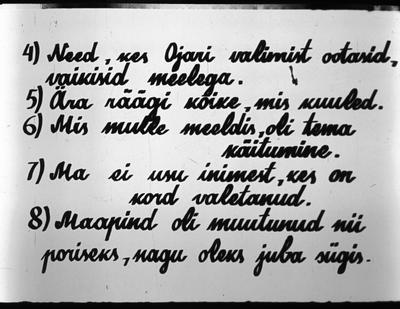 4) Need, kes Ojari valimist ootasid,
vaikisid meelega.
5) Ära räägi kõike, mis kuuled.
6) Mis mulle meeldis, oli tema
käitumine.
7) Ma ei usu inimest, kes on
kord valetanud.
8) Maapind oli muutunud nii
poriseks, nagu oleks juba sügis.